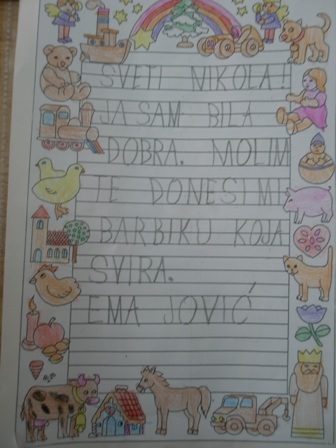 SVETI NIKOLA!
JA SAM BILA
DOBRA. MOLIM
TE DONESI MI
BARBIKU KOJA
SVIRA.
EMA JOVIĆ